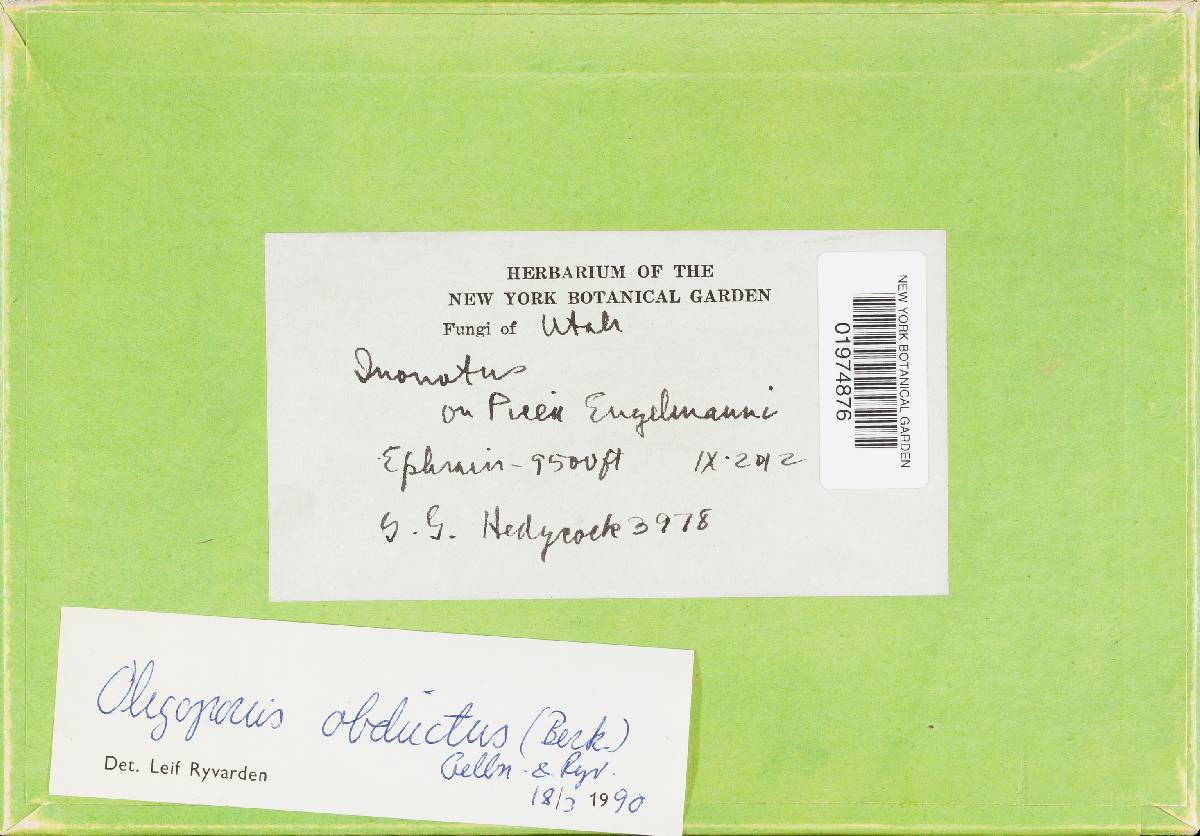 HERBARIUM OF THE
NEW YORK BOTANICAL GARDEN
Fungi of Utah
Inonotus
on Picea Engelmanni
Ephraim - 9500 ft IX·2012
G. G. Hedgcock 3978
NEW YORK BOTANICAL GARDEN
01974876
Oligoporus obductus (Berk.)
Gilbn. & Ryv.
Det. Leif Ryvarden
18/3 1990